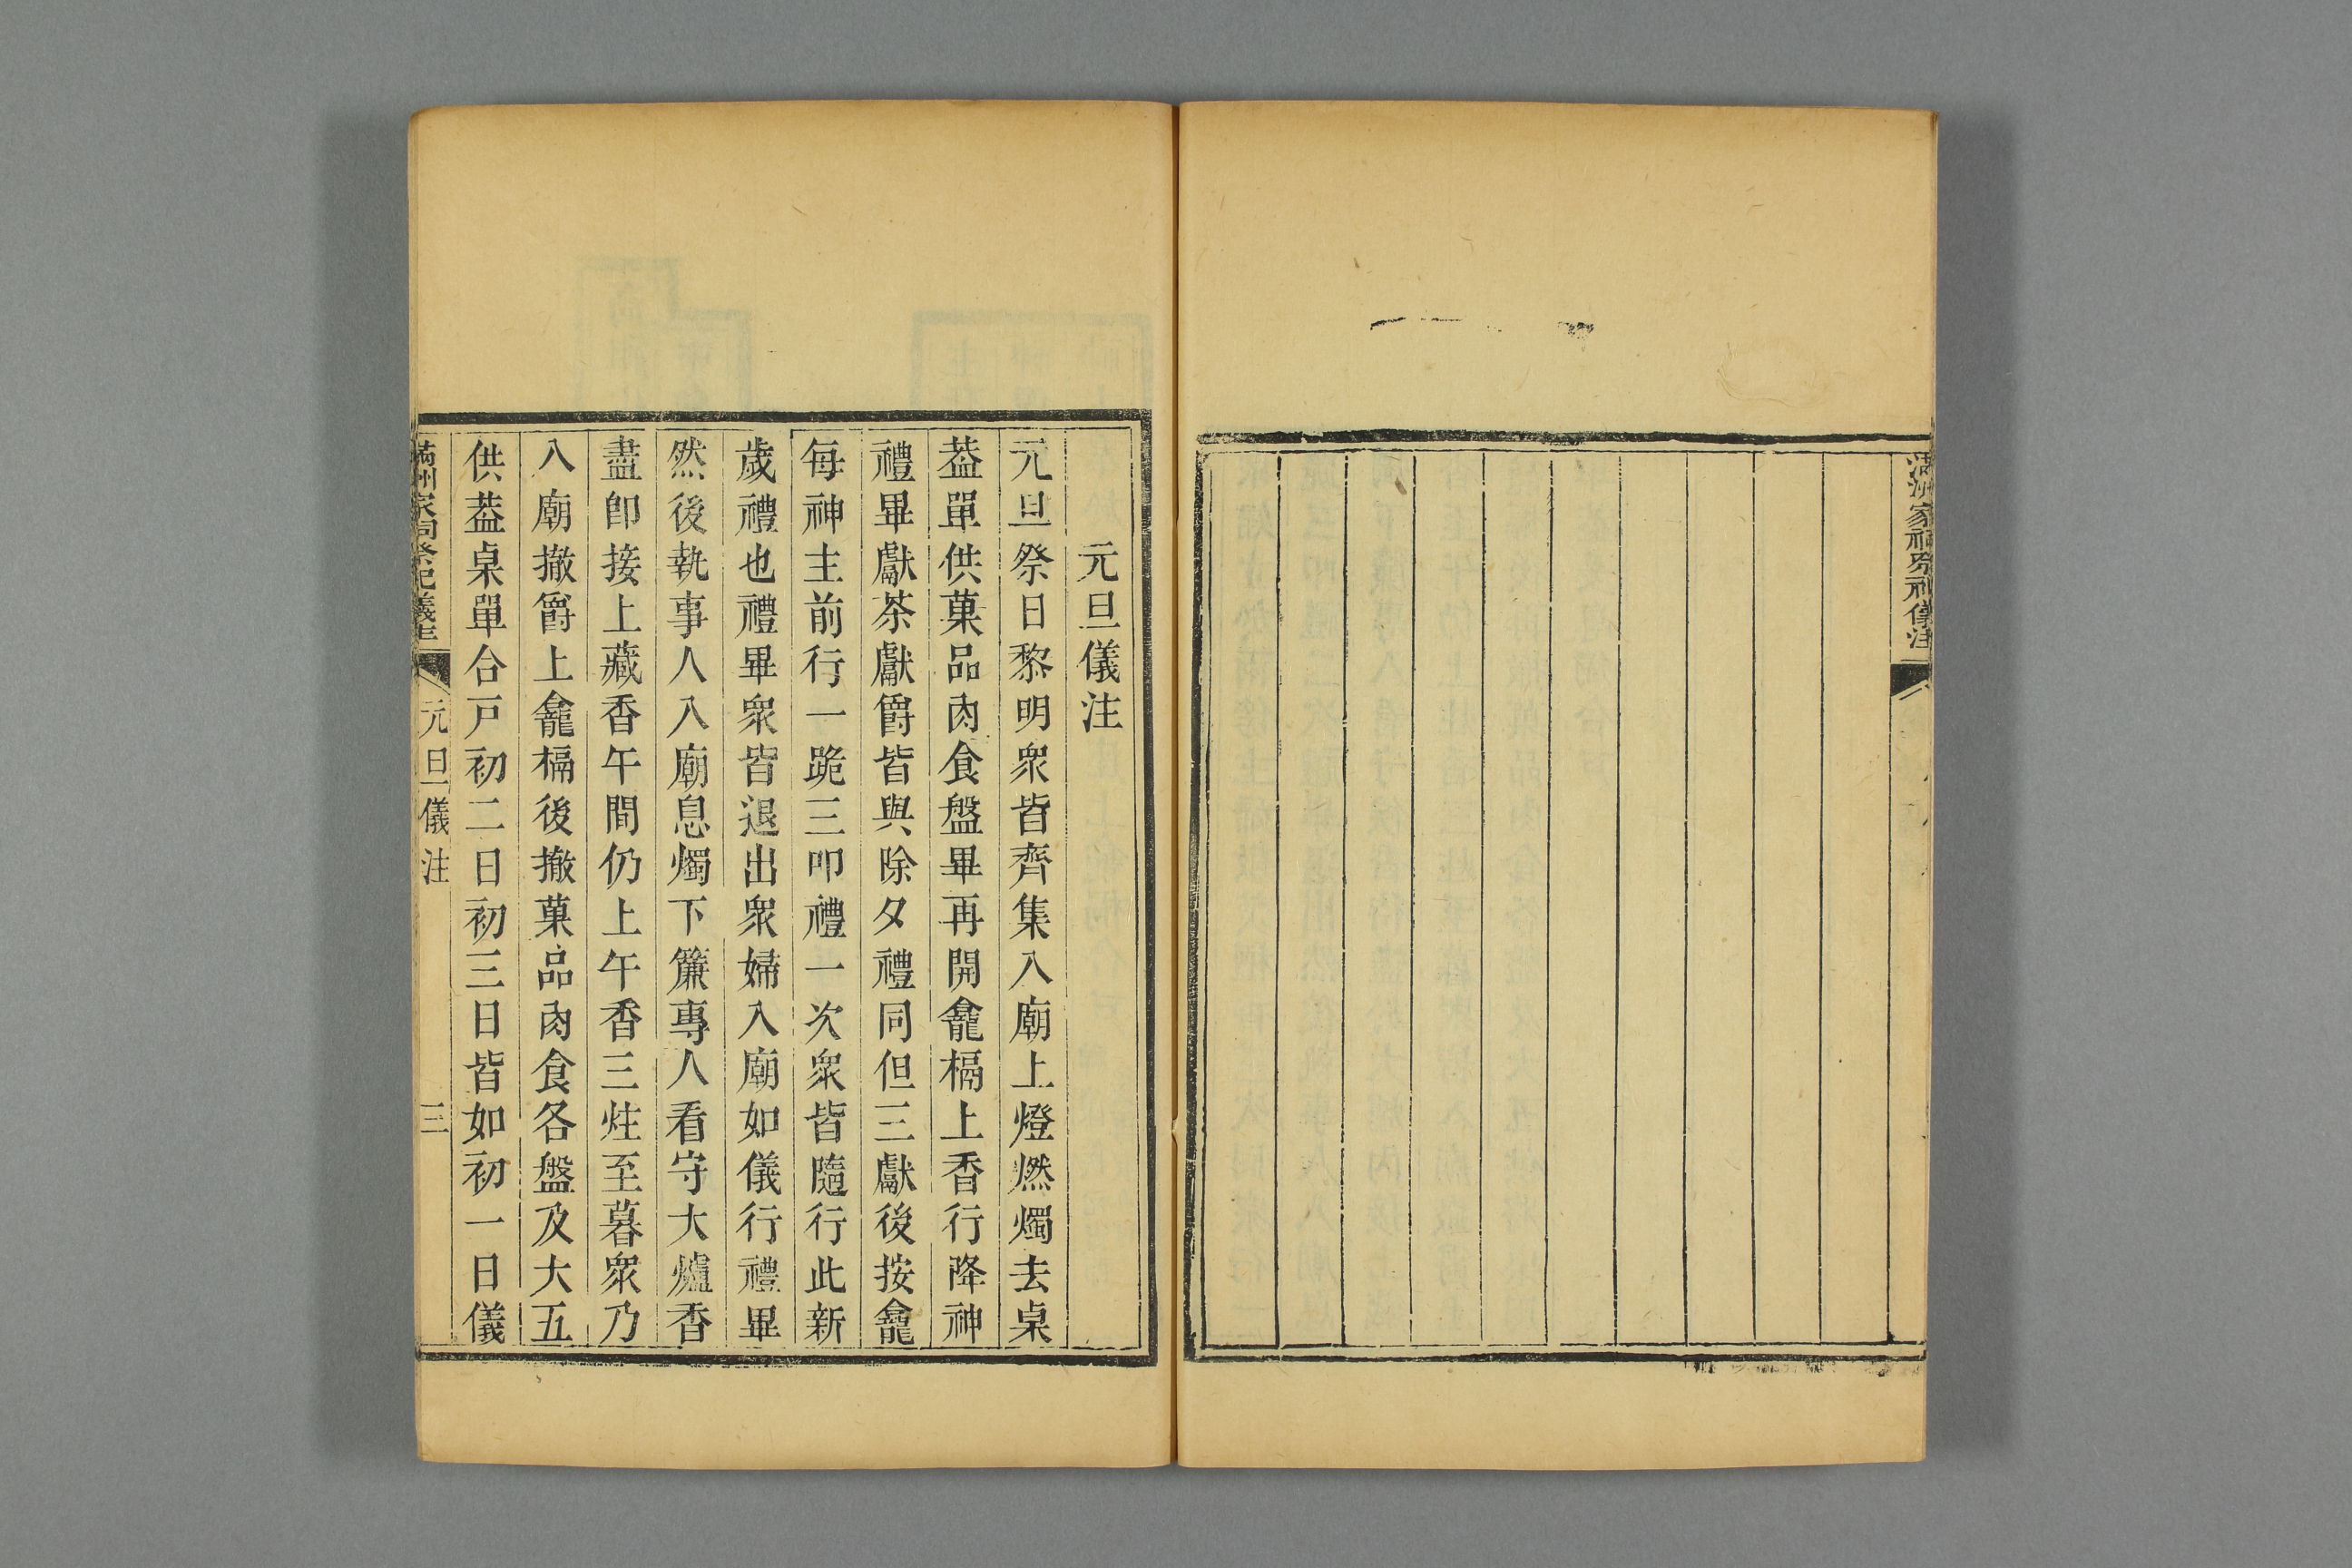 滿洲家祠祭祀儀注
元旦儀注
元旦祭日黎明衆皆齊集入廟上燈燃燭去桌
葢單供菓品肉食盤畢再開龕槅上香行降神
禮畢獻茶獻爵皆與除夕禮同但三獻後按龕
每神主前行一跪三叩禮一次衆皆隨行此新
歲禮也禮畢衆皆退出衆婦入廟如儀行禮畢
然後執事人入廟息燭下簾專人看守大爐香
盡卽接上藏香午間仍上午香三炷至暮衆乃
入廟撤爵上龕槅後撤菓品肉食各盤及大五
供葢桌單合戸初二日初三日皆如初一日儀
滿洲家祠祭祀儀注 元旦儀注 三